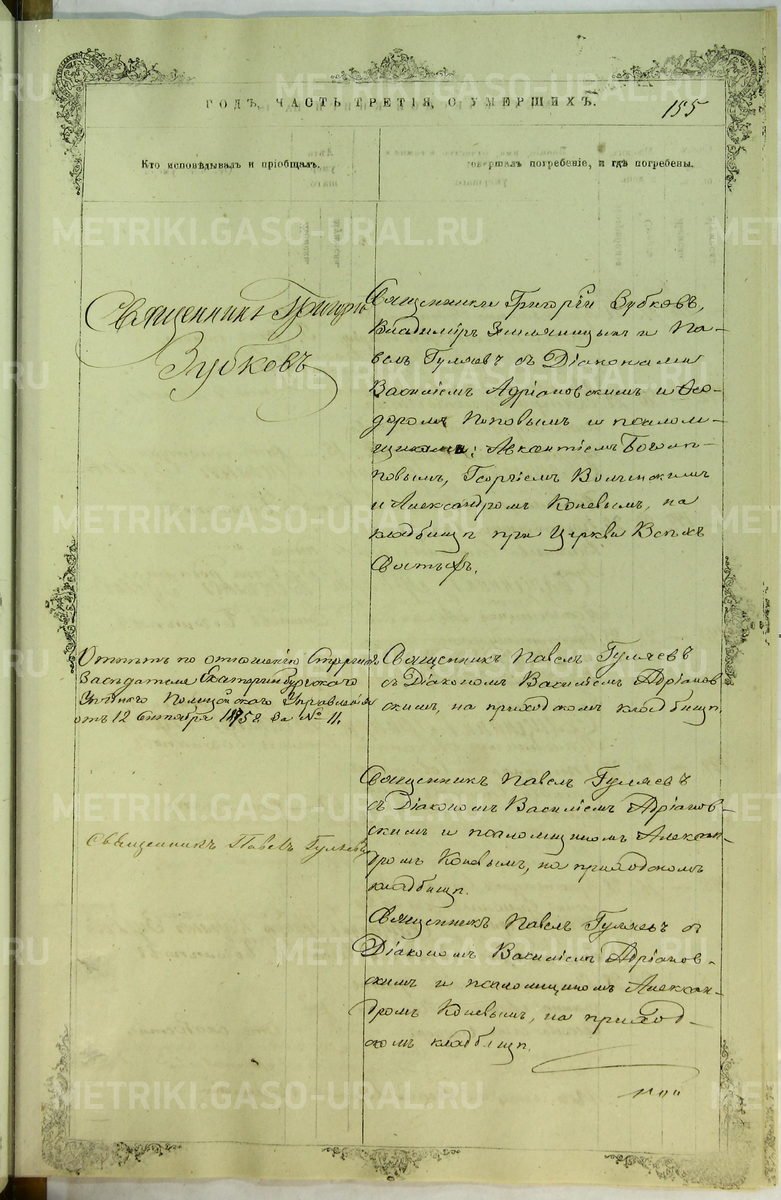 ГОДЪ, ЧАСТЬ ТРЕТІЯ, О УМЕРШИХЪ.
155
Кто исповѣдывалъ и пріобщалъ.
совершалъ погребеніе, и гдѣ погребены.
Священникъ Григорій
Зубковъ
Священники Григорій Зубковъ,
Владиміръ Земляницынъ и Па-
велъ Гуляевъ съ Діаконами
Василіемъ Адріановскимъ и Ѳео-
доромъ Поповымъ и псалом-
щиками:
повымъ, Георгіемъ Волынскимъ
и Александромъ Коневымъ, на
кладбищѣ при Церкви Всѣхъ
Святыхъ.
Отпѣтъ по отношенію
Засѣдателя Екатеринбургскаго
Уѣзднаго Полицейскаго Управленія
отъ 12 Сентября за № 11.
Священникъ Павелъ Гуляевъ
съ Діакономъ Василіемъ Адріанов
скимъ, на приходскомъ кладбищѣ.
Священникъ Павелъ Гуляевъ
Священникъ Павелъ Гуляевъ
съ Діакономъ Василіемъ Адріанов-
скимъ и псаломщикомъ Алексан-
дромъ Коневымъ, на приходскомъ
кладбищѣ.
Священникъ Павелъ Гуляевъ съ
Діакономъ Василіемъ Адріанов-
скимъ и псаломщикомъ Алексан-
дромъ Коневымъ, на приход-
скомъ кладбищѣ.
METRIKI.GASO-URAL.RU